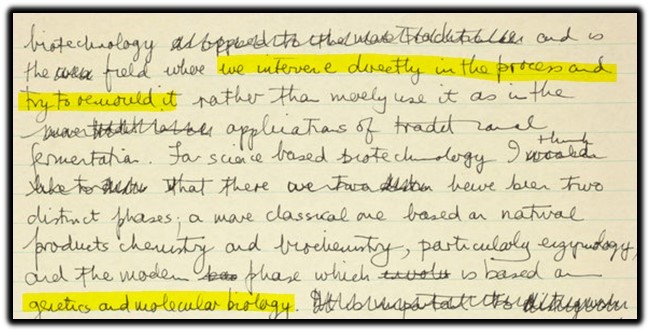 biotechnology as opposed to the more traditional and is
the area field where we intervene directly in the process and
try to remould it rather than merely use it as in the
more applications of traditional
fermentation. For science based biotechnology I think would
like to that there are two have been two
distinct phases; a more classical one based on natural
products chemistry and biochemistry, particularly enzymology,
and the modern phase which is based on
genetics and molecular biology. It is important to distinguish